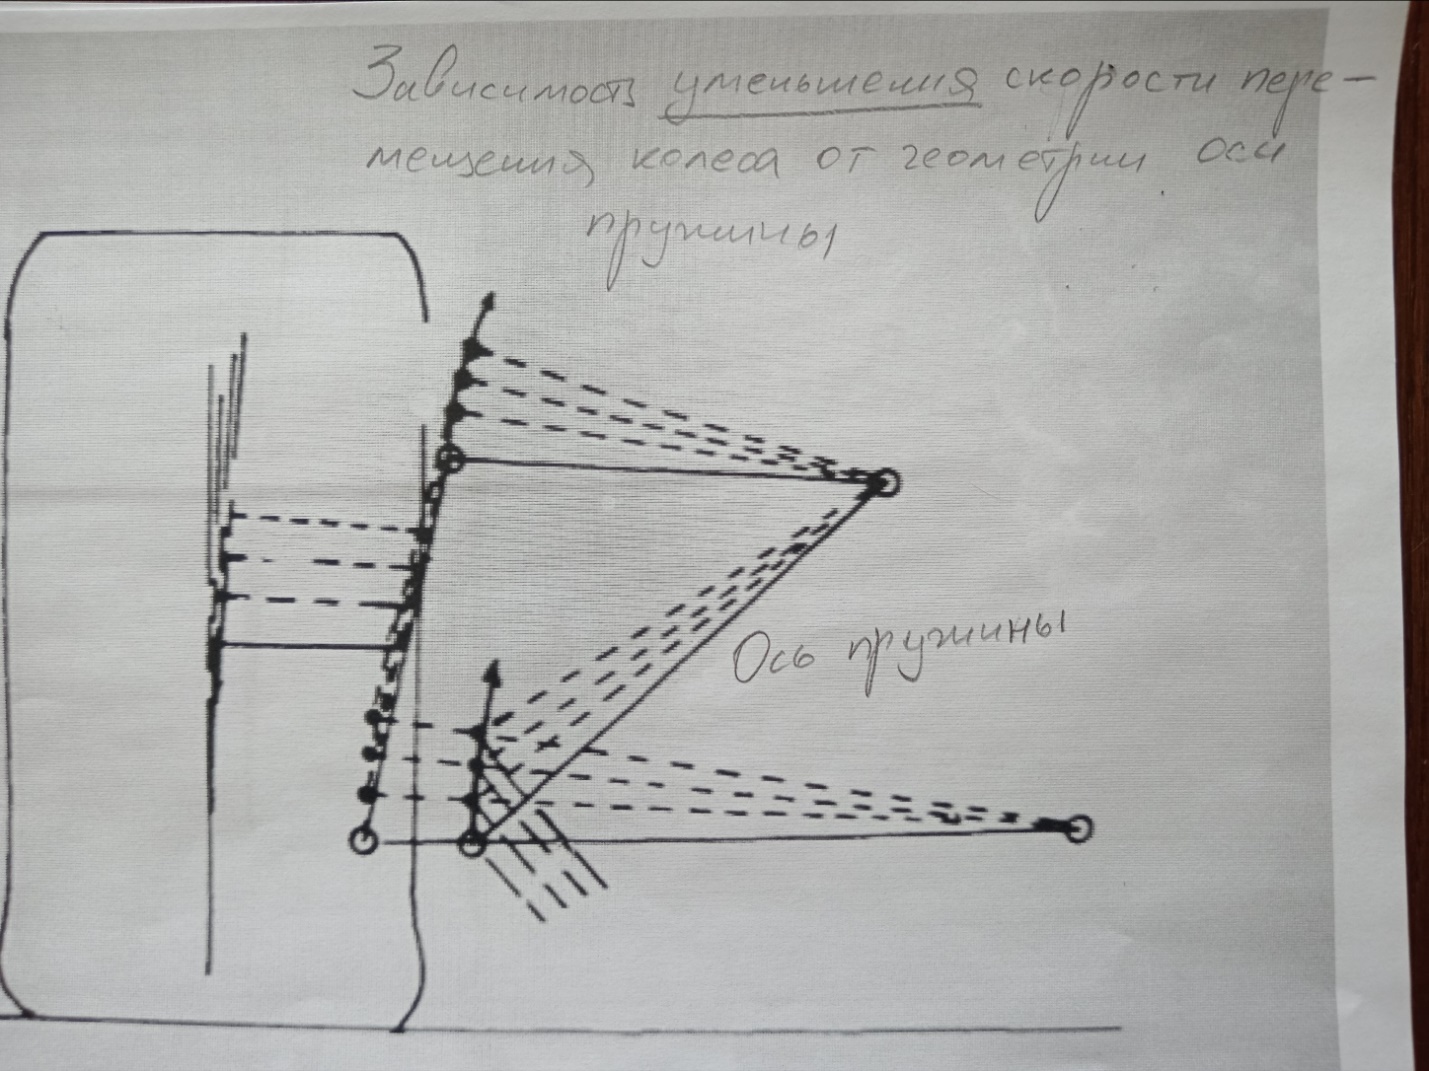 Зависимость уменьшения скорости пере-
мещения колеса от геометрии оси
пружины
Ось пружины